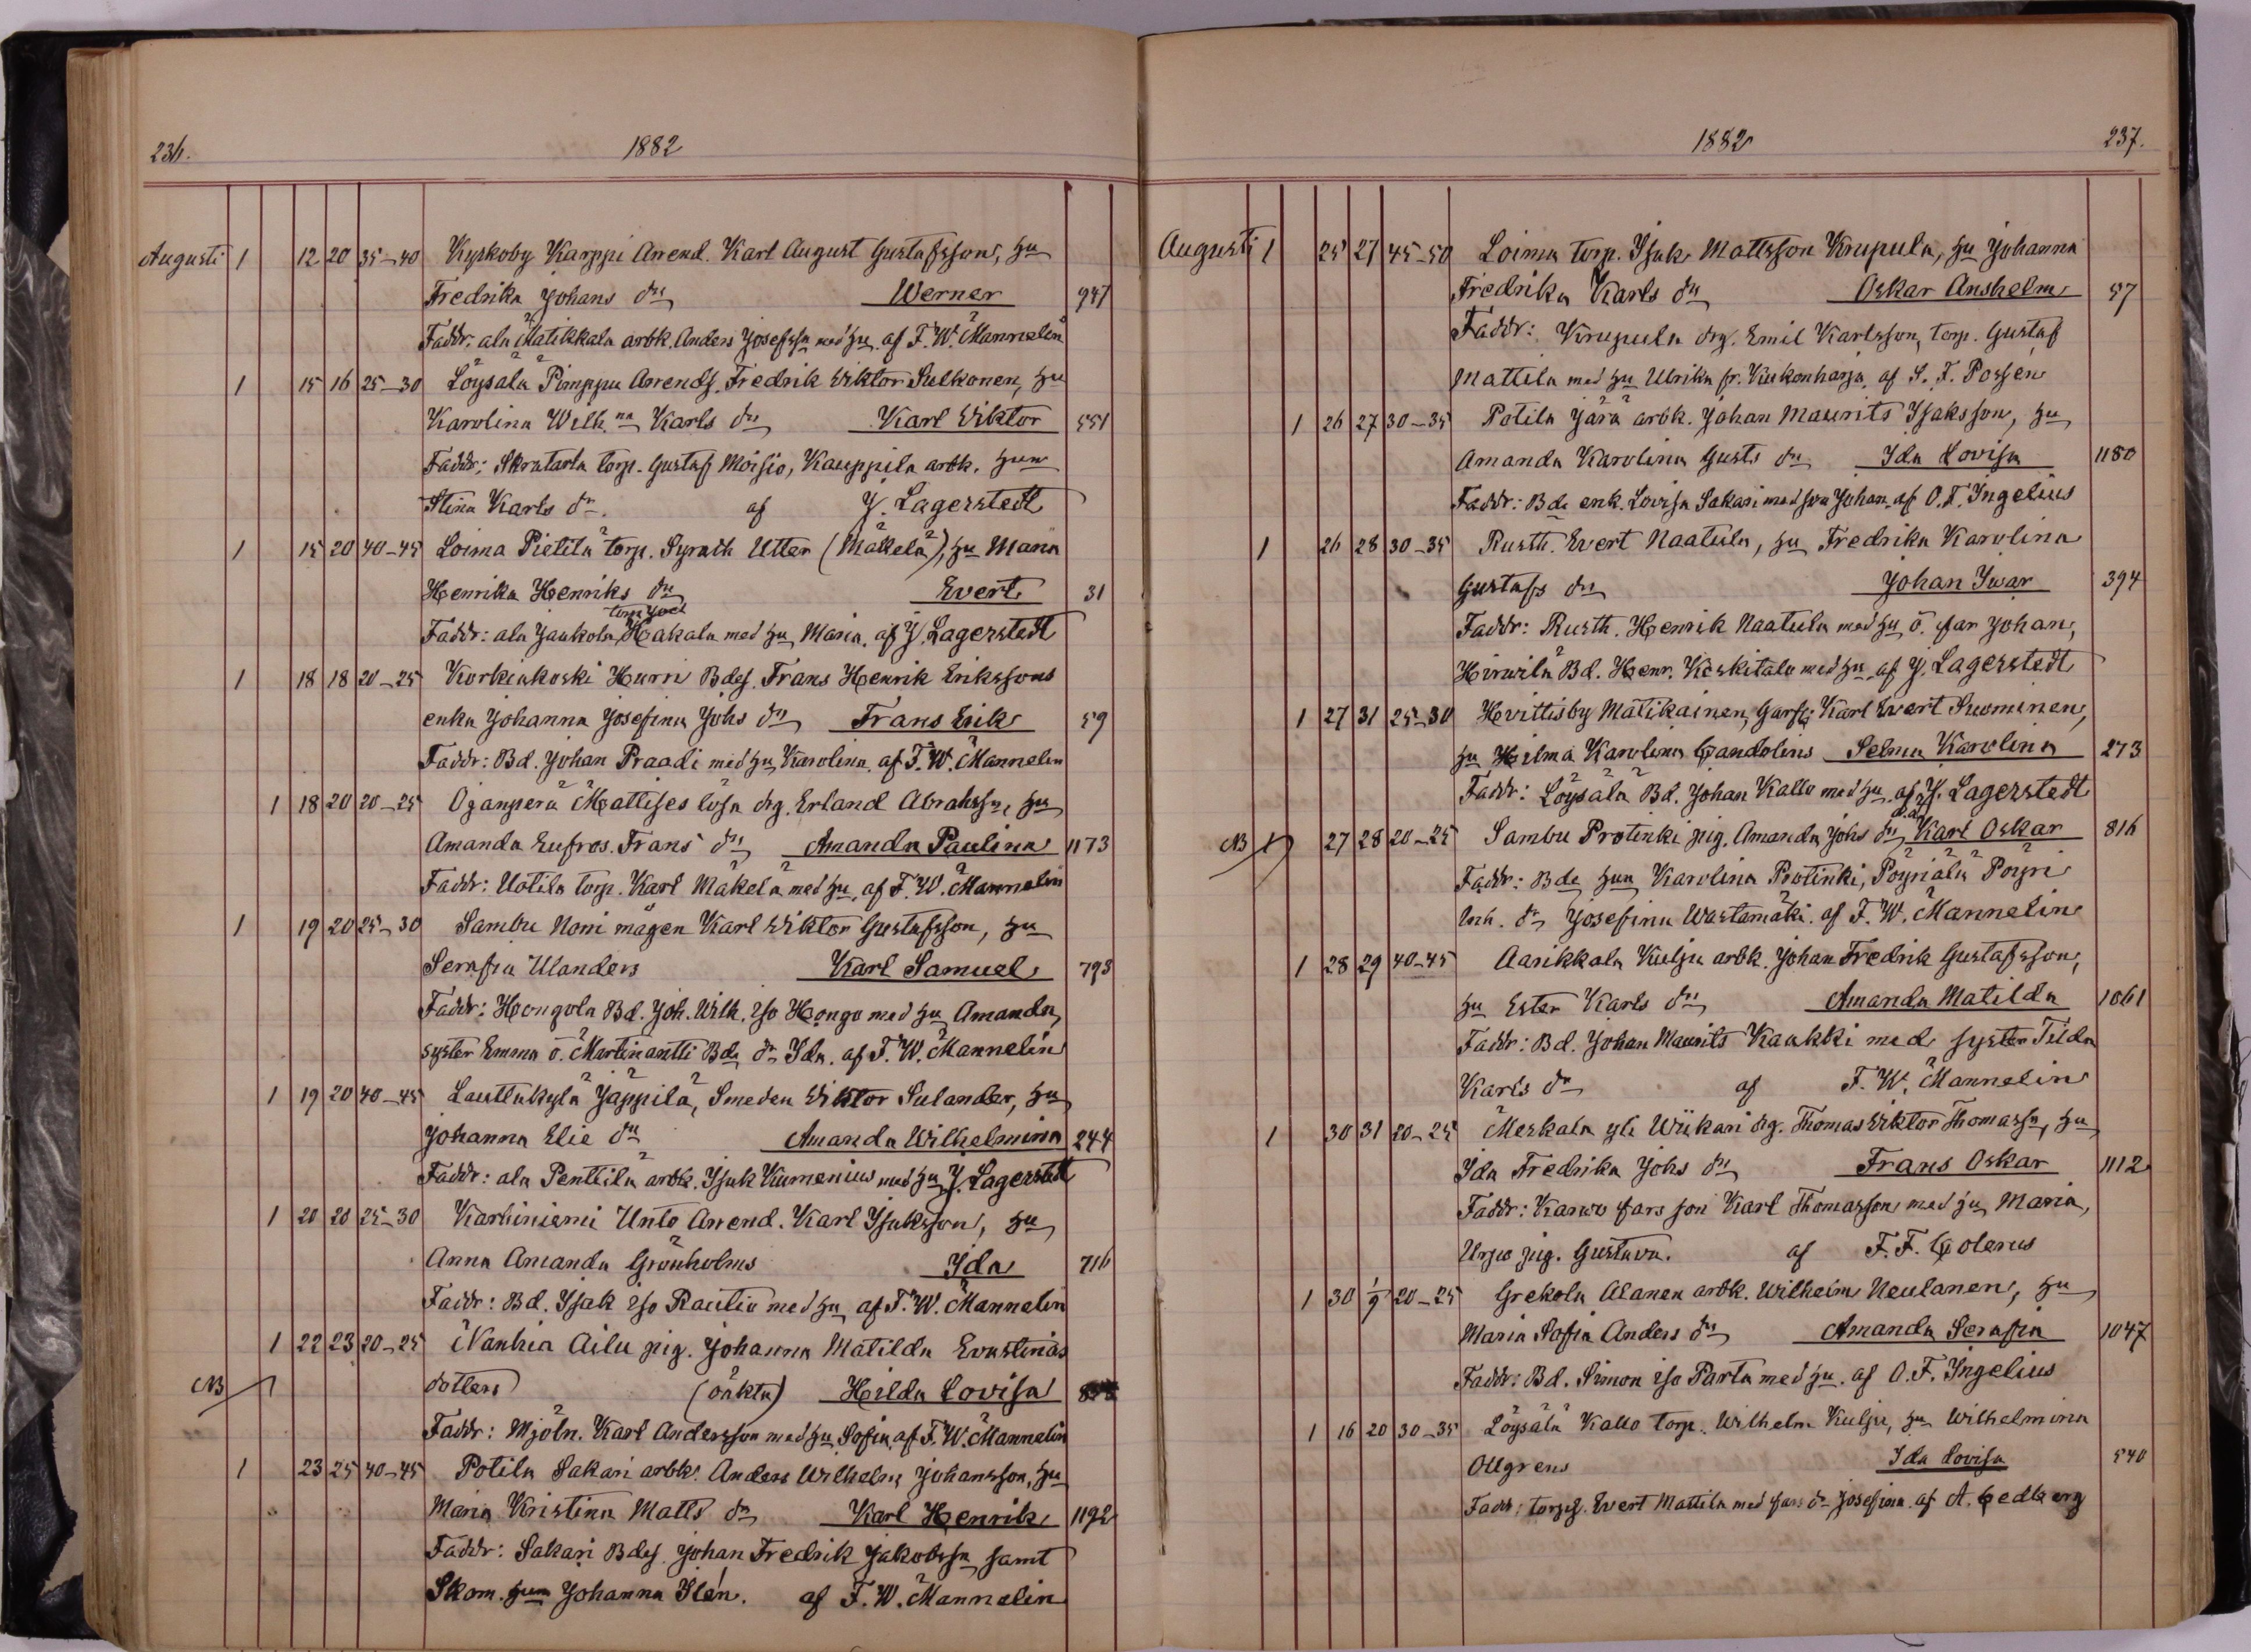 236. 1882
Augusti 1 12 20 35-40 Kyrkoby Karppi Arrend. Karl August Gustafsson, hu
Fredrika Johans dr Werner 947
Faddr: ala Matikkala arbk. Anders Josefssn med hu. af F. W. Mannelin
1 15 16 25-30 Löysälä Pimppu Arrends. Fredrik Viktor Sulkonen, hu
Karolina Wilh.na Karls dr Karl Viktor 551
Faddr: Skratarla torp. Gustaf Moisio, Kauppila arbk. hun
Stina Karls dr. af J. Lagerstedt
1 15 20 40-45 Loima Pietilä torp. Syrach Utter (Mäkelä), hu Maria
Henrika Henriks dr Evert 31
torp Joel
Faddr: ala Jaakola, Hakala med hu Maria, af J. Lagerstedt
1 18 18 20-25 Korkiakoski Hurri Bdes. Frans Henrik Erikssons
enka Johanna Josefina Johs dr Frans Erik 59
Faddr: Bd. Johan Praadi med hu Karolina. af F. W. Mannelin
1 18 20 20-25 Ojanperä Mattises lösa drg. Erland Abrahssn, hu
Amanda Eufros. Frans dr Amanda Paulina 1173
Faddr: Uotila torp. Karl Mäkelä med hu, af F. W. Mannelin
1 19 20 25-30 Sambu Noni mågen Karl Viktor Gustafsson, hu
Serafia Ulanders Karl Samuel 793
Faddr: Hongola Bd. Joh. Wilh. iso Hongo med hu Amanda,
syster Emma o. Martinantti Bds dr Ida. af F. W. Mannelin
1 19 20 40-45 Lauttakylä Jäppilä, Smeden Viktor Sulander, hu
Johanna Elie dr Amanda Wilhelmina 244
Faddr: ala Penttilä arbk. Isak Kumenius med hu, J. Lagerstedt
1 20 20 25-30 Karhiniemi Unto Arrend. Karl Isaksson, hu
Anna Amanda Grönholms Ida 716
Faddr: Bd. Isak iso Rautio med hu af F. W. Mannelin
1 22 23 20-25 Nanhia Ailu pig. Johanna Matilda Evastinas
NB dotters (oäkta) Hilda Lovisa
Faddr: Mjöln. Karl Andersson med hu Sofia, af F. W. Mannelin
1 23 25 40-45 Potila Sakari arbk. Anders Wilhelm Johansson, hu
Maria Kristina Matts dr Karl Henrik 1192
Faddr: Sakari Bdes. Johan Fredrik Jakobssn samt
Skom. hun Johanna Ilén. af F. W. Mannelin
1882 237.
Augusti 1 25 27 45-50 Loima torp. Isak Mattsson Krupula, hu Johanna
Fredrika Karls dr Oskar Anshelm 57
Faddr: Krupula drg. Emil Karlsson, torp. Gustaf
Mattila med hu Ulrika fr. Kukonharja af S. F. Possén
1 26 27 30-35 Potila Järä arbk. Johan Maurits Isaksson, hu
Amanda Karolina Gusts dr Ida Lovisa 1180
Faddr: Bds enk. Lovisa Sakari med son Johan, af O. F. Ingelius
1 26 28 30-35 Rusth. Evert Naatula, hu Fredrika Karolina
Gustafs dr Johan Iwar 394
Faddr: Rusth. Henrik Naatula med hu o. far Johan,
Hirwilä Bd. Henr. Keskitalo med hu. af J. Lagerstedt
1 27 31 25-30 Hvittisby Matikainen, Garfs. Karl Evert Suominen,
hu Hilma Karolina Candolins Selma Karolina 273
Faddr: Löysälä Bd. Johan Kallo med hu. af J. Lagerstedt
NB 1 27 28 20-25 Sambu Protinki pig. Amanda Johs dr, Karl Oskar 816
Faddr: Bds hun Karolina Protinki, Pöyriälä Pöyri
Inh. dr Josefina Wastamäki. af F. W. Mannelin
1 28 29 40-45 Aarikkala Kulju arbk. Johan Fredrik Gustafsson,
hu Ester Karls dr Amanda Matilda 1061
Faddr: Bd. Johan Maurits Kaukki med syster Tilda
Karls dr af F. W. Mannelin
1 30 31 20-25 Meskala yli Wiikari drg. Thomas Viktor Thomassn, hu
Ida Fredrika Johs dr Frans Oskar 1112
Faddr: Karwo fars son Karl Thomasson med hu Maria,
Urpo pig. Gustava. af F. F. Colerus
1 30 1/9 20-25 Grekola Alanen arbk. Wilhelm Neulanen, hu
Maria Sofia Anders dr Amanda Serafia 1047
Faddr: Bd. Simon iso Parta med hu. af O. F. Ingelius
1 16 20 30-35 Löysälä Kallo torp. Wilhelm Kulju, hu Wilhelmina
Ollgrens Ida Lovisa 540
Faddr: torps. Evert Mattila med fars dr Josefina af A. Cedberg